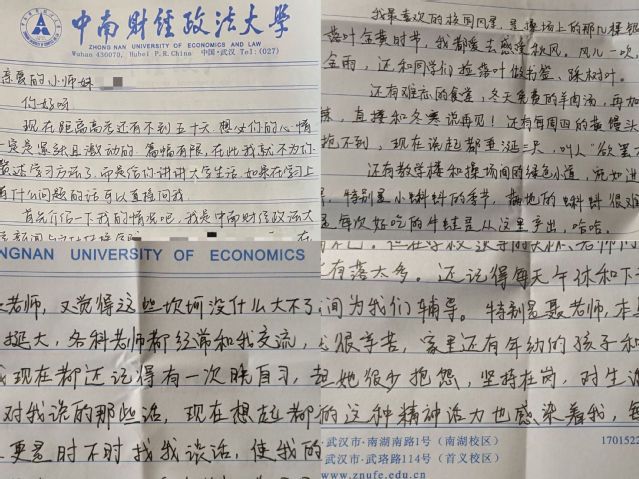 中南财经政法大学
ZHONG NAN UNIVERSITY OF ECONOMICS AND LAW
Wuhan 430070, Hubei P.R.China 中国·武汉 Tel:(027)
亲爱的小师妹
你好呀
现在距离高考还有不到五十天,想必你们的心情
一定是紧张且激动的。篇幅有限,在此我就不为你
赘述学习方法了,而是给你讲讲大学生活,如果在学习上
有什么问题的话可以直接问我。
首先介绍一下我的情况吧,我是中南财经政法大
在
我最喜欢的校园风景,是操场上的那几棵银
落叶金黄时节,我都爱去感受秋风。风儿一吹,
金雨,还和同学们捡落叶做书签、踩树叶。
还有难忘的食堂,冬天免费的羊肉汤,再加
辣,直接和冬寒说再见!还有每周四的黄馒头
抢不到,现在说起都垂涎三天,叫人“欲罢不
还有教学楼和操场间的绿色小道,
特别是小蝌蚪的季节,满地的蝌蚪很难
是每次好吃的牛蛙是从这里产出,哈哈。
NGNAN UNIVERSITY OF ECONOMICS
老师,又觉得这些坎坷没什么大不了
挺大,各科老师都经常和我交流,
我现在都还记得有一次晚自习,
对我说的那些话,现在想起都
更是时不时找我谈话,使我的
有落太多。还记得每天午休和下
间为我们辅导。特别是聂老师,本身
很辛苦,家里还有年幼的孩子和
但她很少抱怨,坚持在岗,对生活
的这种精神活力也感染着我,每
·武汉市·南湖南路1号(南湖校区)
·武汉市·武珞路114号(首义校区)
1701522
www.znufe.edu.cn